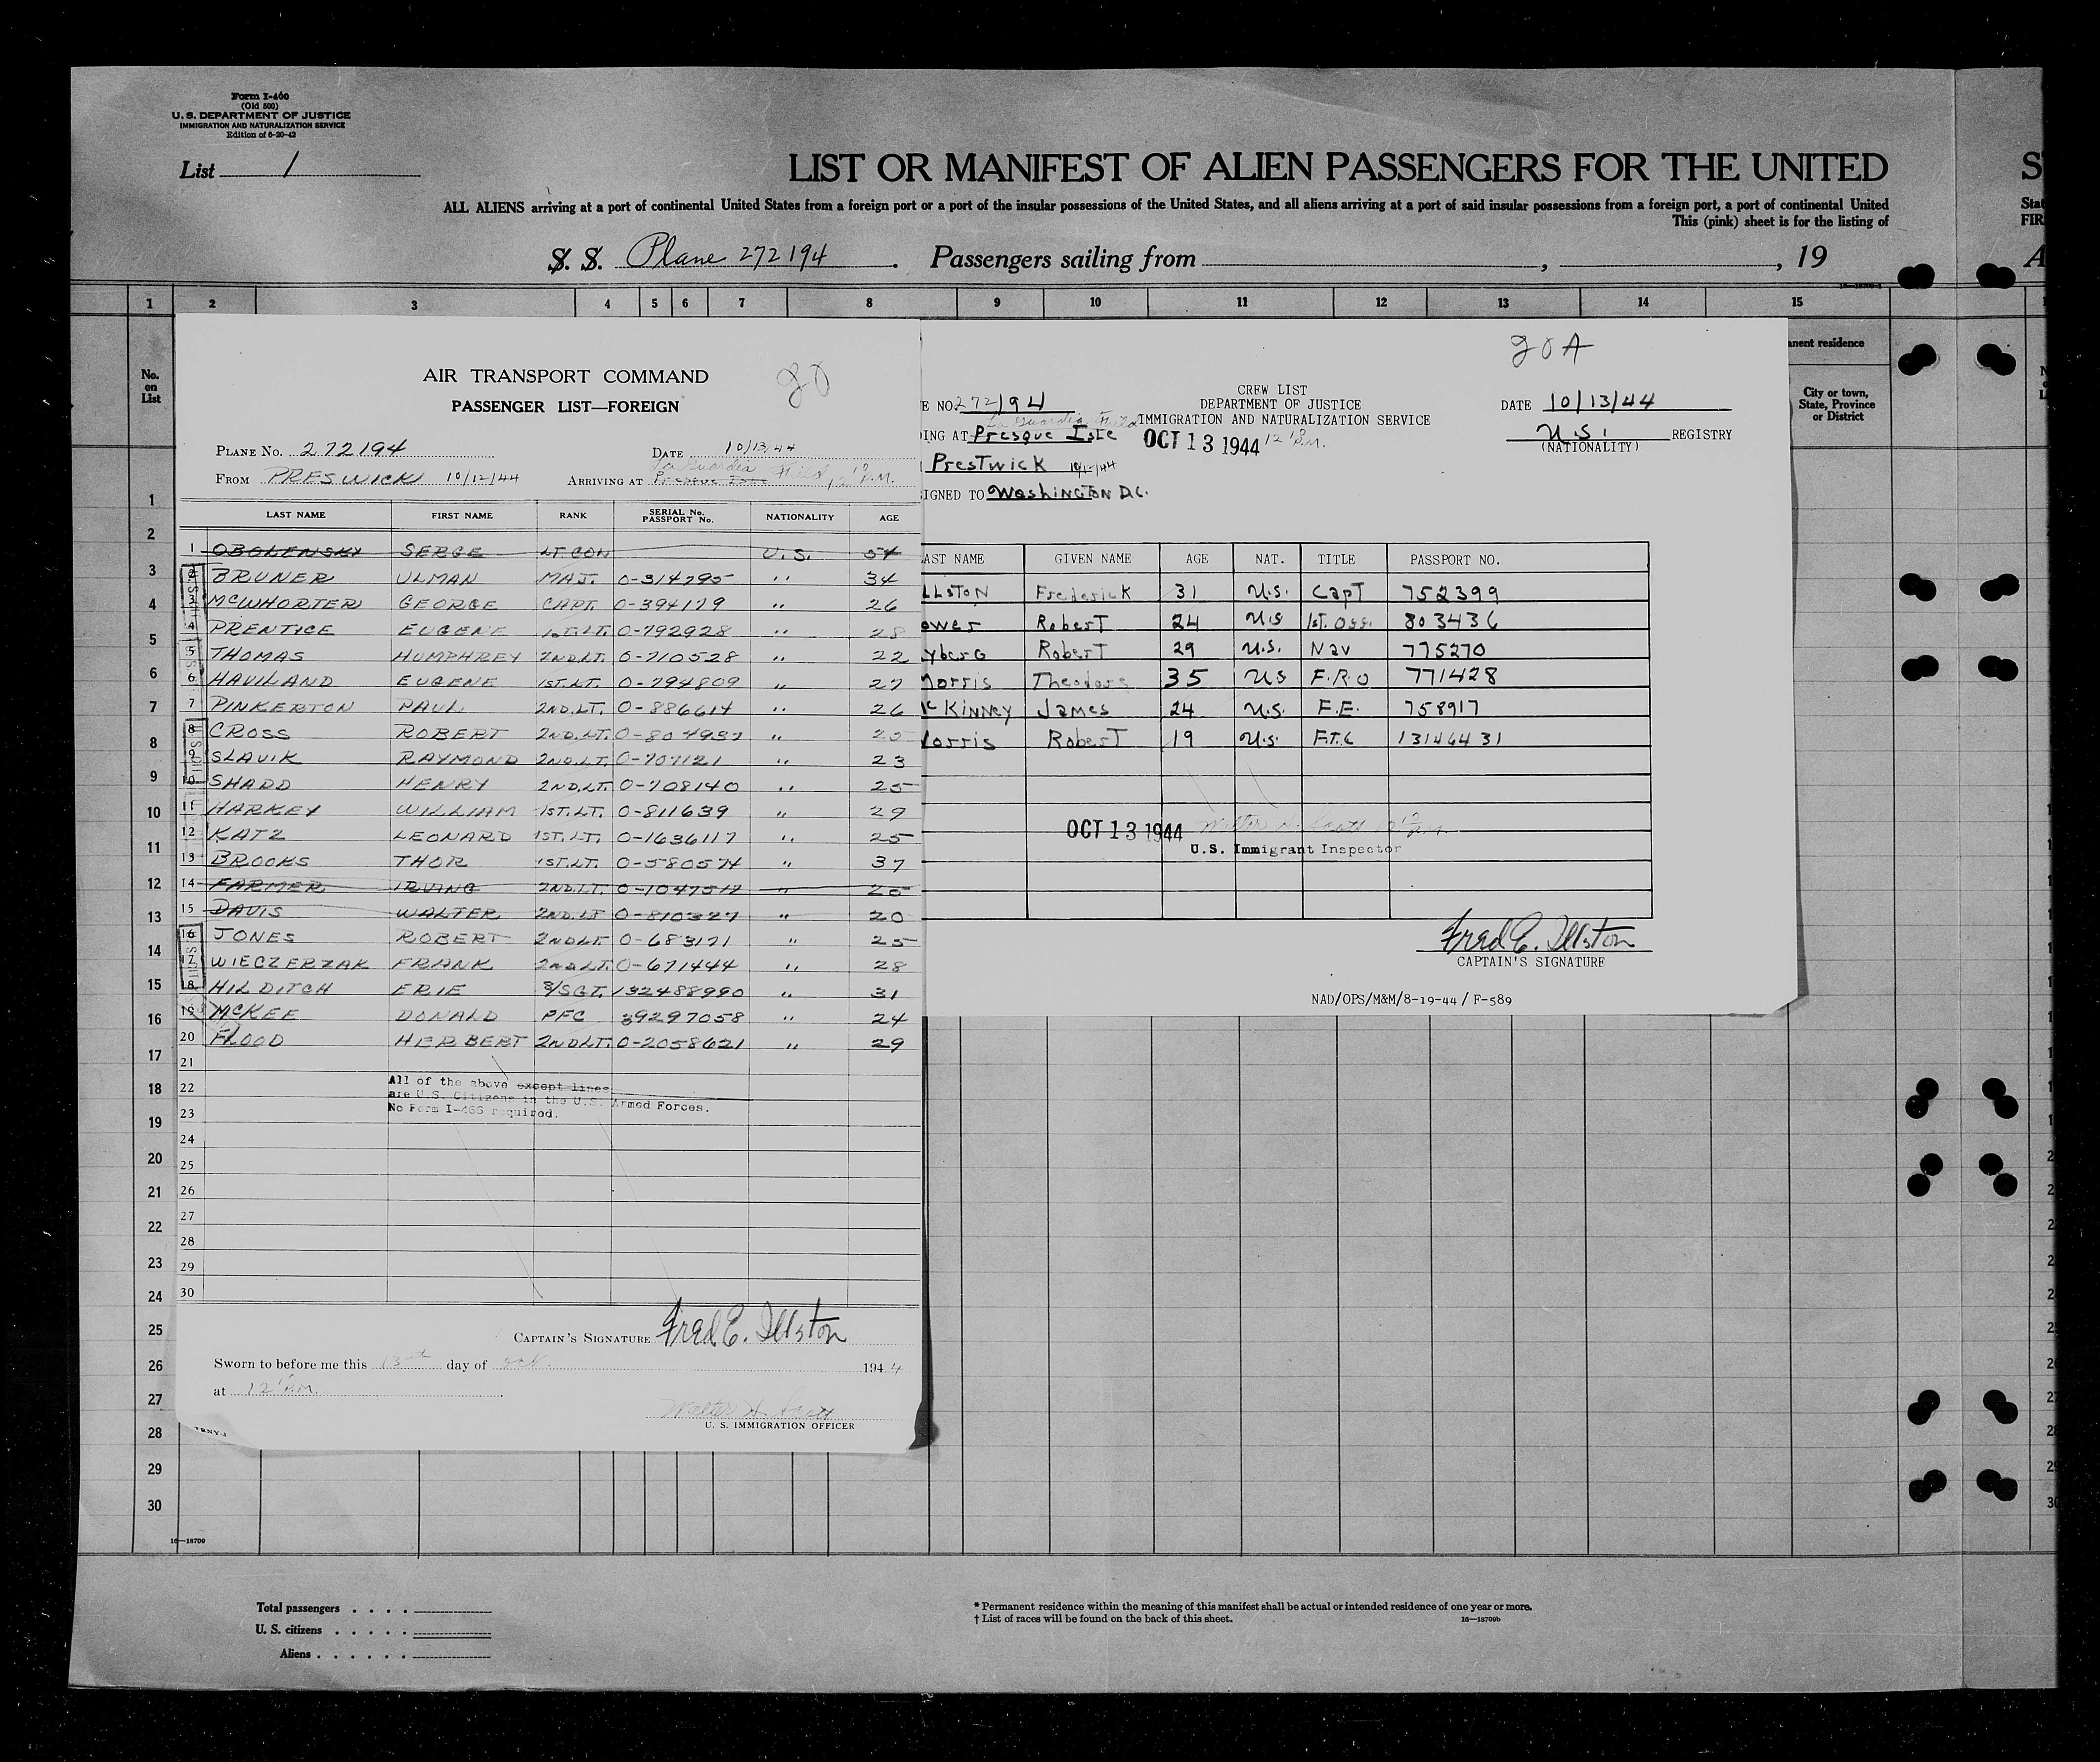 Form I-460
(Old 500)
U. S. DEPARTMENT OF JUSTICE
IMMIGRATION AND NATURALIZATION SERVICE
Edition of 6-20-42
List 1
LIST OR MANIFEST OF ALIEN PASSENGERS FOR THE UNITED
ALL ALIENS arriving at a port of continental United States from a foreign port or a port of the insular possessions of the United States, and all aliens arriving at a port of said insular possessions from a foreign port, a port of continental United
This (pink) sheet is for the listing of
S. S. Plane 272194. Passengers sailing from , , 19
1 2 3 4 5 6 7 8 9 10 11 12 13 14 15
No. on List
nent residence
City or town, State, Province or District
AIR TRANSPORT COMMAND
PASSENGER LIST—FOREIGN
20
PLANE No. 272194 DATE 10/13/44
La Guardia Field
FROM PRESWICK 10/12/44 ARRIVING AT Presque Isle 12 P.M.
LAST NAME FIRST NAME RANK SERIAL No. PASSPORT No. NATIONALITY AGE
1 OBOLENSKY SERGE LT. COL U.S. 54
2 BRUNER ULMAN MAJ. O-314295 " 34
3 McWHORTER GEORGE CAPT. O-394179 " 26
4 PRENTICE EUGENE 1ST.LT. O-792928 " 28
5 THOMAS HUMPHREY 2ND.LT. O-710528 " 22
6 HAVILAND EUGENE 1ST.LT. O-794809 " 27
7 PINKERTON PAUL 2ND.LT. O-886614 " 26
8 CROSS ROBERT 2ND.LT. O-804937 "
9 SLAVIK RAYMOND 2ND.LT. O-707121 " 23
10 SHADD HENRY 2ND.LT. O-708140 " 25
11 HARKEY WILLIAM 1ST.LT. O-811639 " 29
12 KATZ LEONARD 1ST.LT. O-1636117 " 25
13 BROOKS THOR 1ST.LT. O-580574 " 37
14 FARMER IRVING 2ND.LT. O-1047517 "
15 DAVIS WALTER 2ND.LT O-810327 " 20
16 JONES ROBERT 2NDLT O-683171 " 25
17 WIECZERZAK FRANK 2NDLT. O-671444 " 28
18 HILDITCH ERIE S/SGT. 132488990 " 31
19 McKEE DONALD PFC 39297058 " 24
20 FLOOD HERBERT 2NDLT. O-2058621 " 29
21
22
23
24
25
26
27
28
29
30
All of the above except lines
are U.S. Citizens in the U.S. Armed Forces.
No Form I-466 required.
CAPTAIN'S SIGNATURE Fred E. Illston
Sworn to before me this 13th day of Oct. 1944
at 12 P.M.
Walter A. Scott
U. S. IMMIGRATION OFFICER
20A
CREW LIST
DEPARTMENT OF JUSTICE
IMMIGRATION AND NATURALIZATION SERVICE
E NO. 272194
DATE 10/13/44
La Guardia Field
ING AT Presque Isle OCT 13 1944 12 P.M.
U.S. REGISTRY
(NATIONALITY)
Prestwick 10/12/44
IGNED TO Washington D.C.
AST NAME GIVEN NAME AGE NAT. TITLE PASSPORT NO.
LLSTON Frederick 31 U.S. Capt 752399
ower Robert 24 U.S 1st. Off. 803436
yberg Robert 29 U.S. Nav 775270
Morris Theodore 35 US F.R.O 771428
McKinney James 24 U.S. F.E. 758917
orris Robert 19 U.S. F.T.C 13146431
OCT 13 1944 Walter A. Scott 12 P.M.
U.S. Immigrant Inspector
Fred E. Illston
CAPTAIN'S SIGNATURE
NAD/OPS/M&M/8-19-44 / F-589
1
2
3
4
5
6
7
8
9
10
11
12
13
14
15
16
17
18
19
20
21
22
23
24
25
26
27
28
29
30
16—18709
Total passengers
U. S. citizens
Aliens
* Permanent residence within the meaning of this manifest shall be actual or intended residence of one year or more.
† List of races will be found on the back of this sheet.
16—18709b